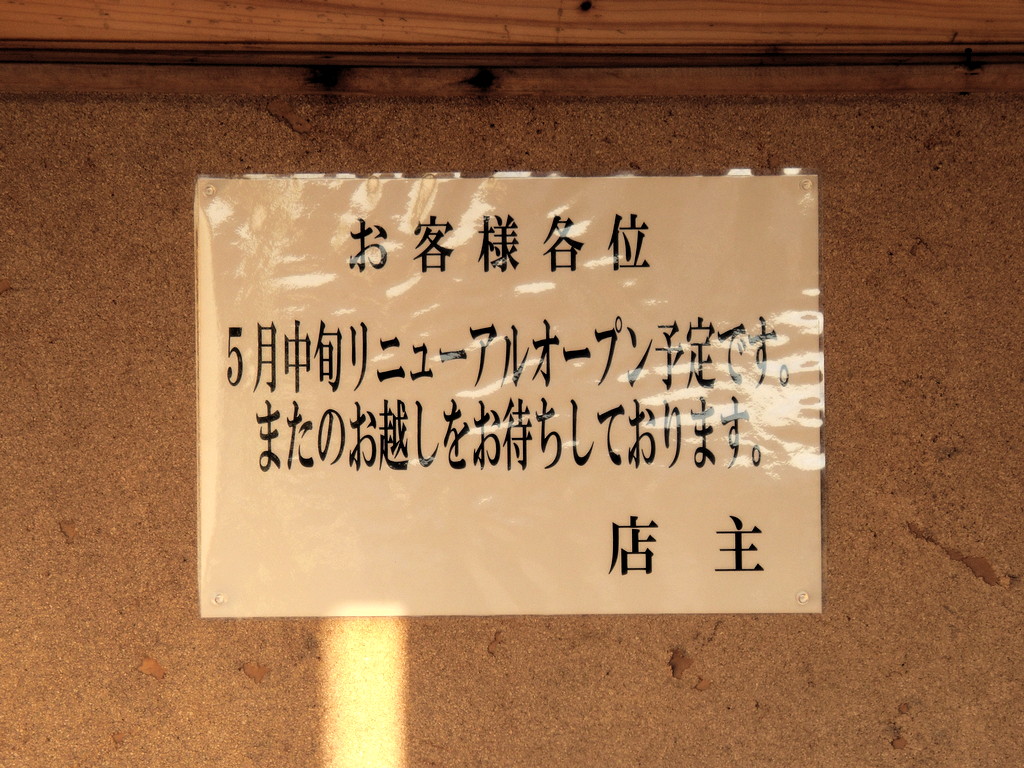 お客様各位
5月中旬リニューアルオープン予定です。
またのお越しをお待ちしております。
店 主